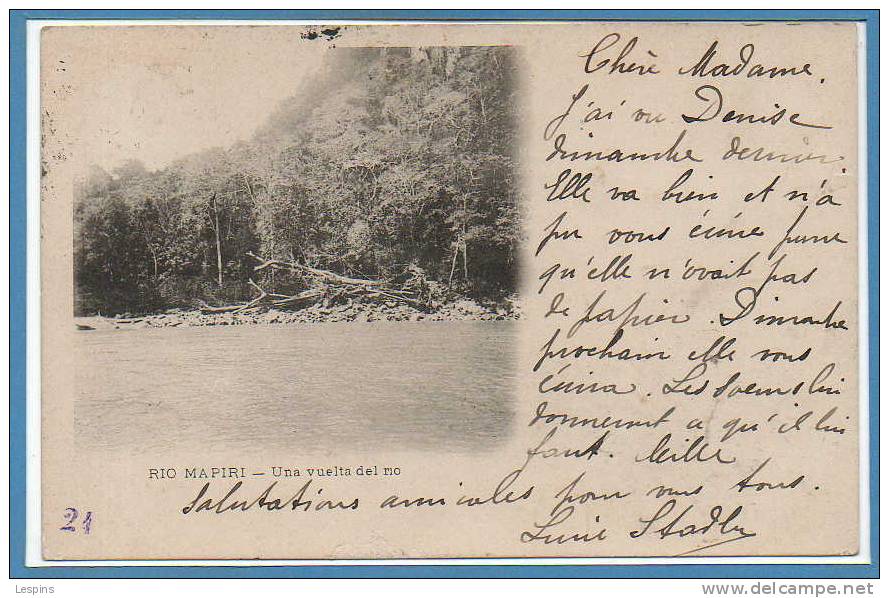 Chère Madame.
J'ai vu Denise
dimanche dernier
Elle va bien et n'a
pu vous écrire parce
qu'elle n'avait pas
de papier. Dimanche
prochain elle vous
écrira. Les Soeurs lui
donneront ce qu'il lui
faut. Mille
Salutations amicales pour vous tous.
Stadler
RIO MAPIRI — Una vuelta del rio
21
Lespins
www.delcampe.net